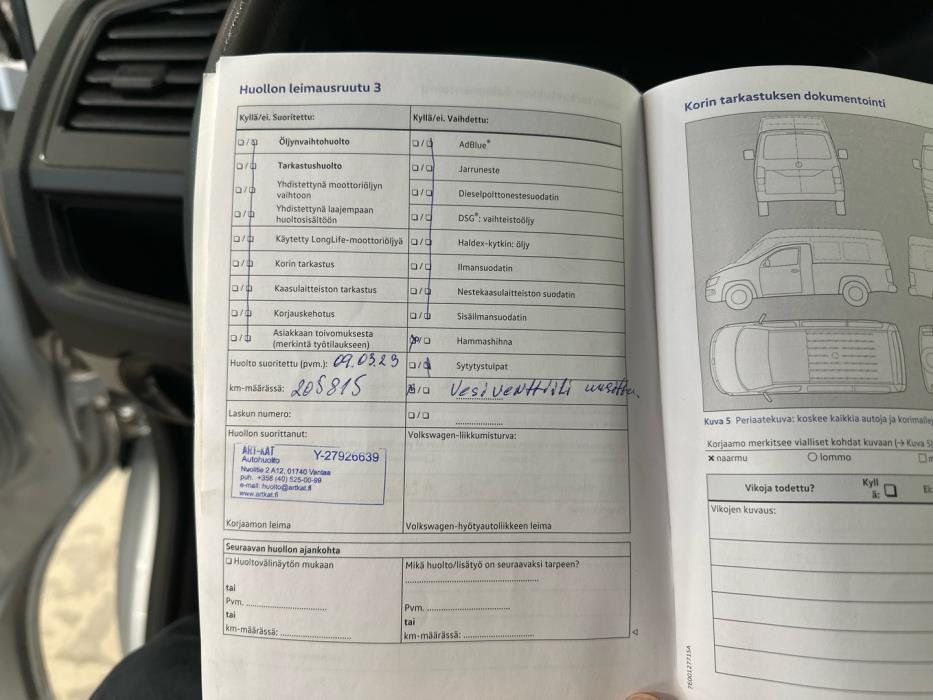 Huollon leimausruutu 3
Kyllä/ei. Suoritettu:
Kyllä/ei. Vaihdettu:
Öljynvaihtohuolto
AdBlue®
Tarkastushuolto
Jarruneste
Yhdistettynä moottoriöljyn
vaihtoon
Dieselpolttonestesuodatin
Yhdistettynä laajempaan
huoltosisältöön
DSG®: vaihteistoöljy
Käytetty LongLife-moottoriöljyä
Haldex-kytkin: öljy
Korin tarkastus
Ilmansuodatin
Kaasulaitteiston tarkastus
Nestekaasulaitteiston suodatin
Korjauskehotus
Sisäilmansuodatin
Asiakkaan toivomuksesta
(merkintä työtilaukseen)
Hammashihna
Huolto suoritettu (pvm.): 09.03.23
Sytytystulpat
km-määrässä: 205815
Vesiventtiili uusittu.
Laskun numero:
Huollon suorittanut:
Volkswagen-liikkumisturva:
ART-KAT
Autohuolto
Y-27926639
Nuolitie 2 A12, 01740 Vantaa
puh. +358 (40) 525-00-99
e-mail: huolto@artkat.fi
www.artkat.fi
Korjaamon leima
Volkswagen-hyötyautoliikkeen leima
Seuraavan huollon ajankohta
Huoltovälinäytön mukaan
Mikä huolto/lisätyö on seuraavaksi tarpeen?
tai
Pvm.
Pvm.
tai
tai
km-määrässä:
km-määrässä:
Korin tarkastuksen dokumentointi
Kuva 5 Periaatekuva: koskee kaikkia autoja ja
Korjaamo merkitsee vialliset kohdat kuvaan (→ Kuva 5)
naarmu
lommo
Vikoja todettu?
Kyll
ä:
Ei:
Vikojen kuvaus:
7E0012771SA